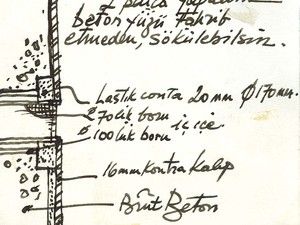 2 parça
beton yüzü tahrib
etmeden, sökülebilsin.
Lastik conta 20mm Ø170mm.
270lik boru
iç içe
100lük boru
16mm kontra kalıp
Brüt Beton